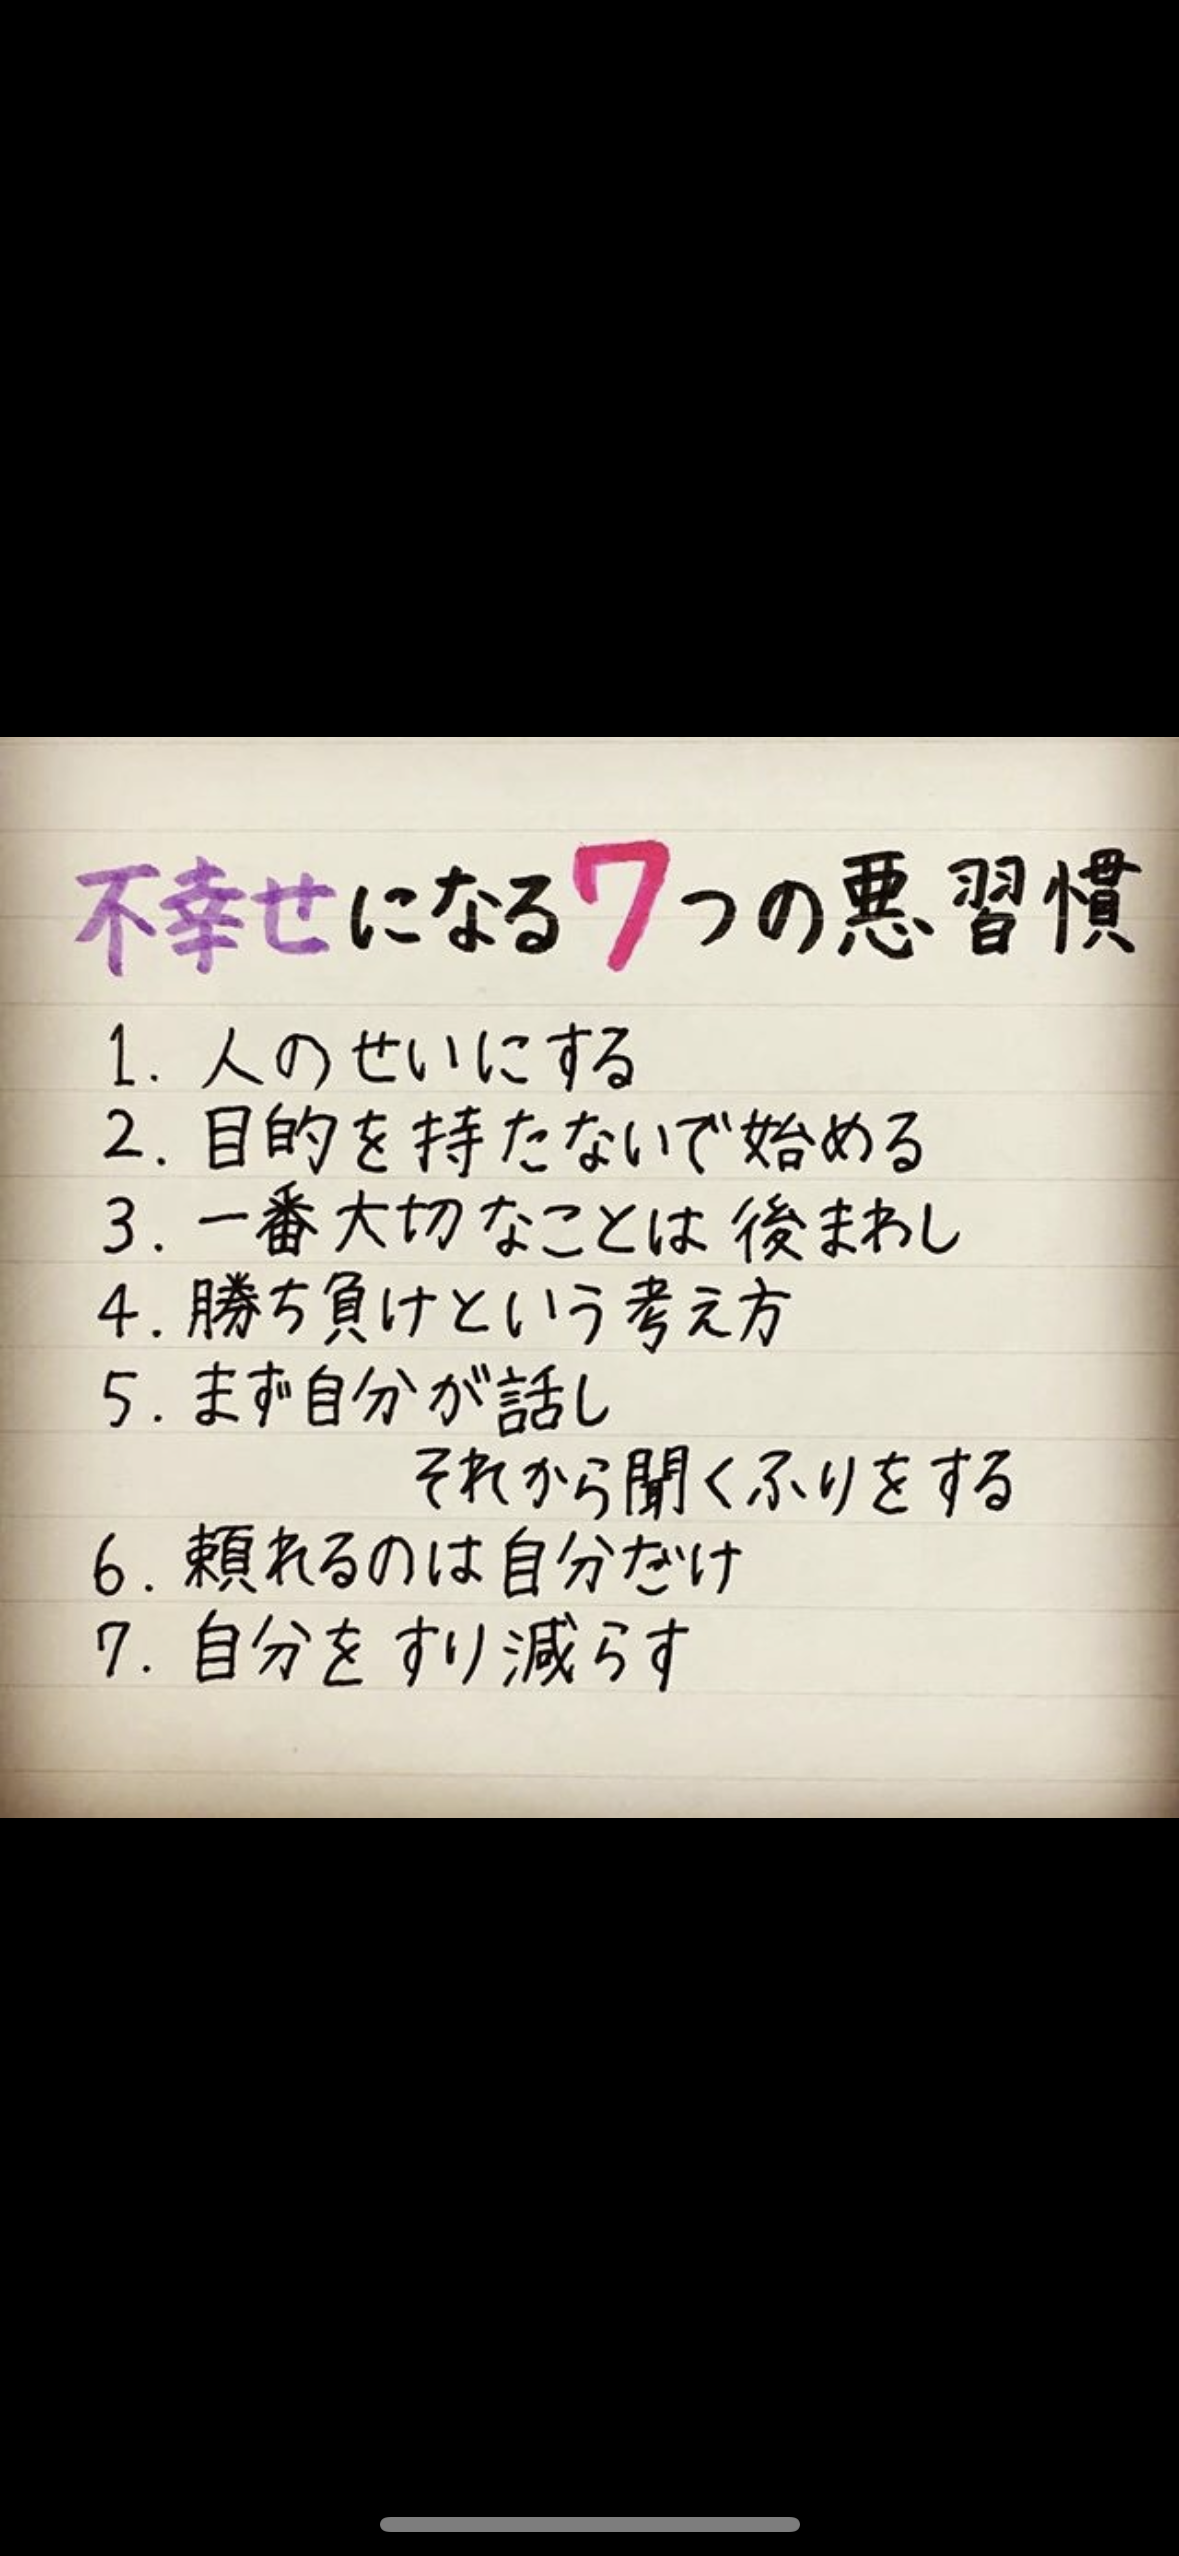 不幸せになる7つの悪習慣
1. 人のせいにする
2. 目的を持たないで始める
3. 一番大切なことは後まわし
4. 勝ち負けという考え方
5. まず自分が話し
それから聞くふりをする
6. 頼れるのは自分だけ
7. 自分をすり減らす